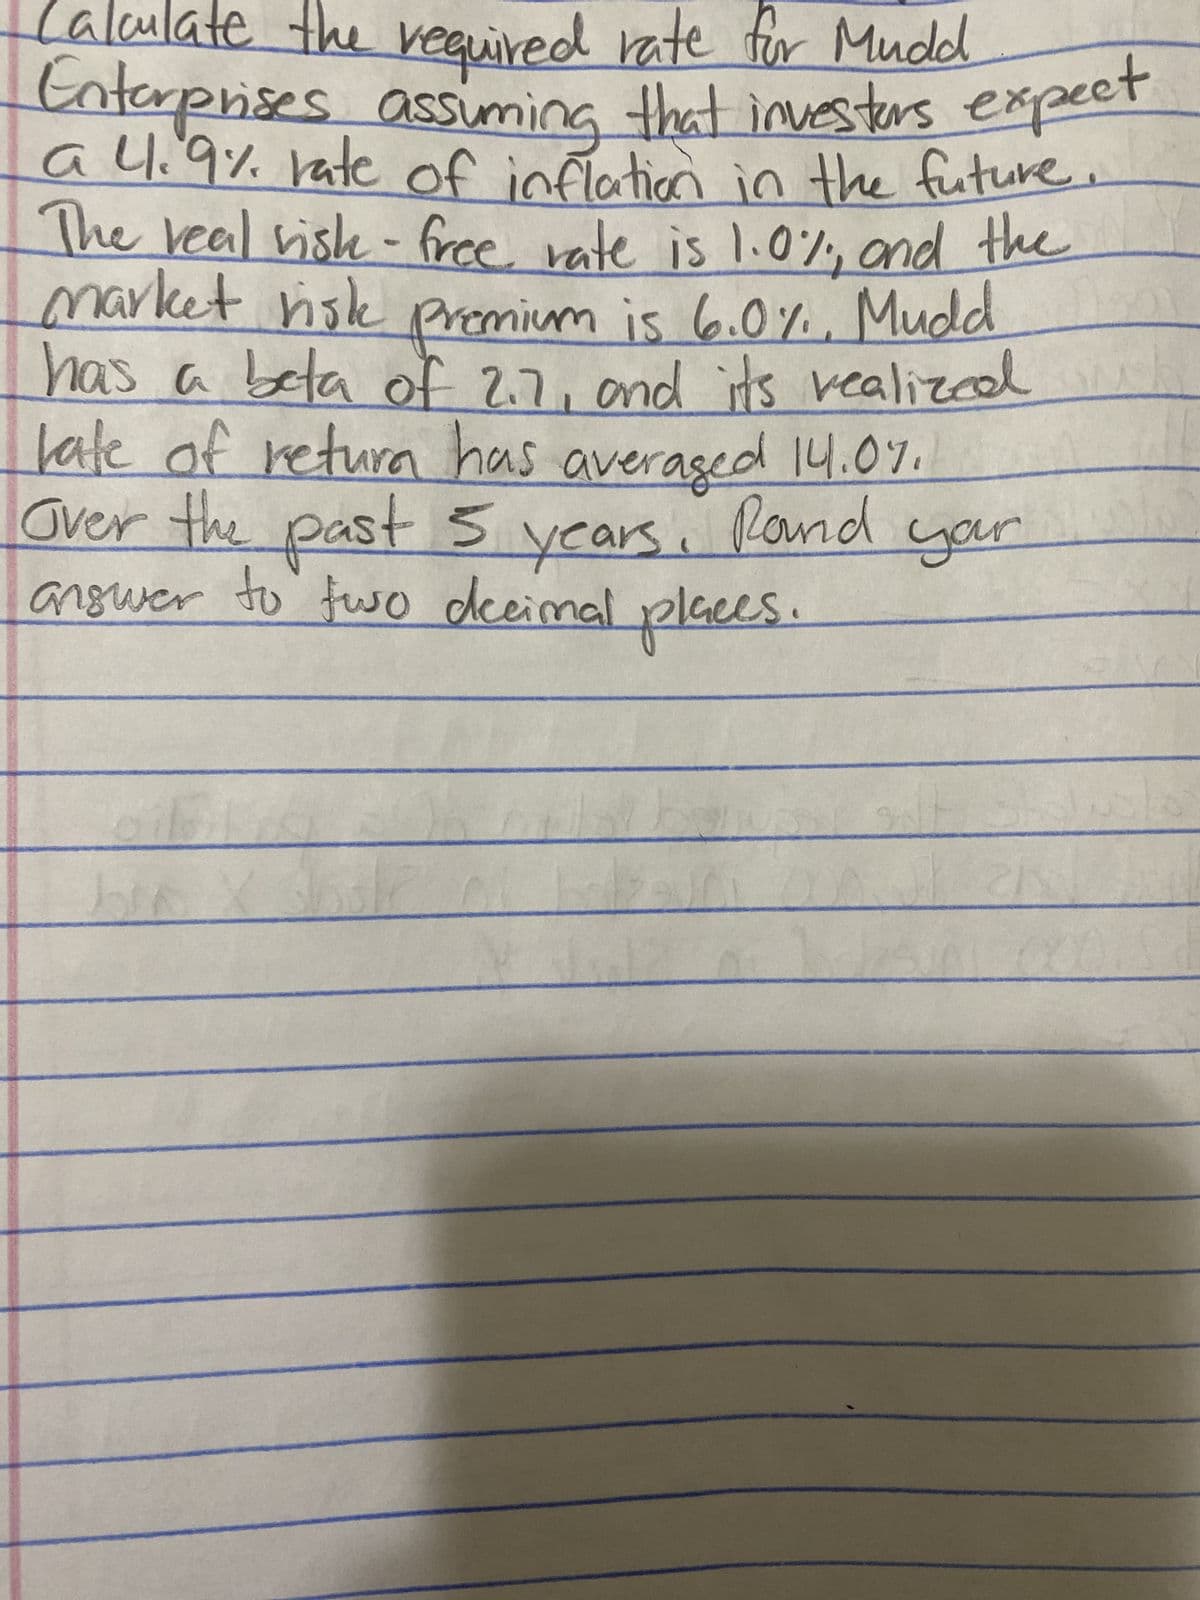 Calculate the required rate for Mudd
Enterprises assuming that investors expect
a 4.9% rate of inflation in the future.
The real risk-free rate is 1.0%, and the
market risk premium is 6.0%. Mudd
has a beta of 2.7, and its realized
rate of return has averaged 14.0%
over the past 5 years. Round your
answer to two decimal places.